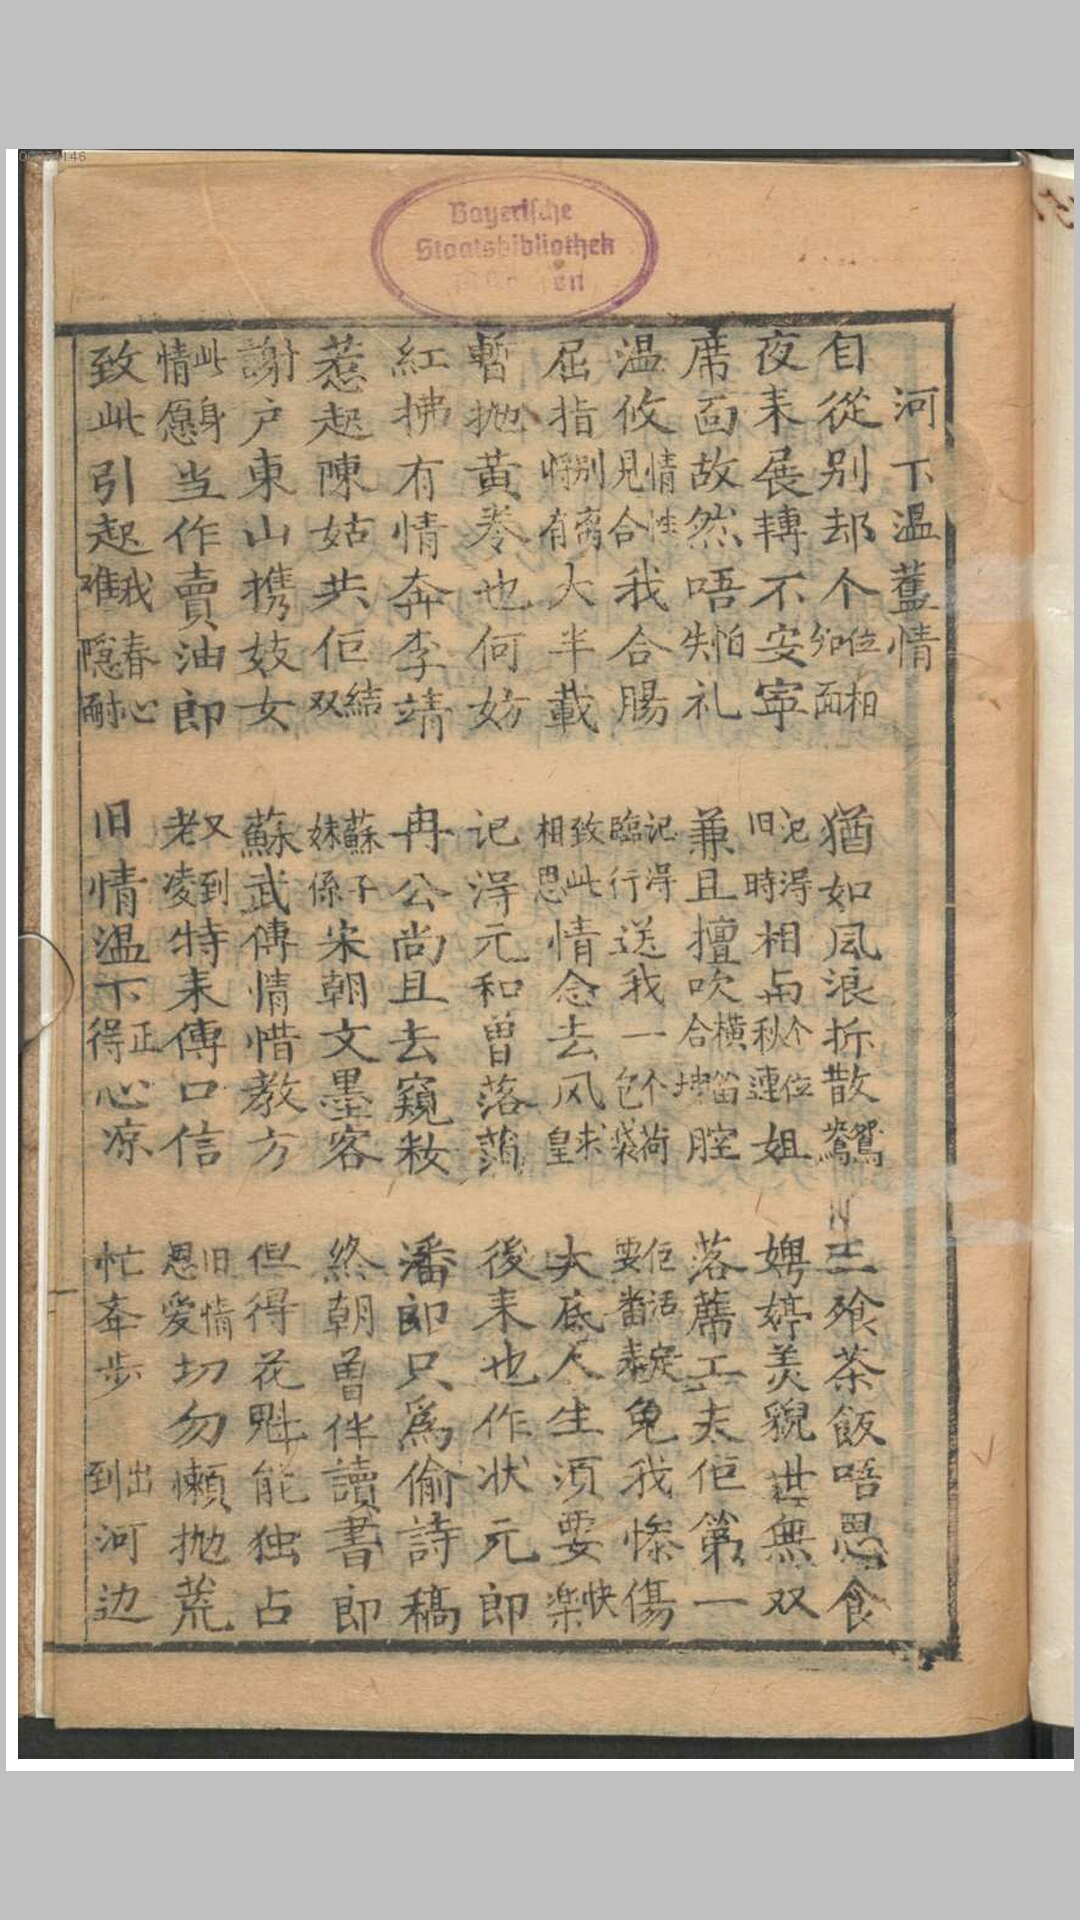 Bayerische
Staatsbibliothek
河下温舊情
自從别却个位分相面 猶如風浪拆散鴛鴦 三飧茶飯唔思食
夜来展轉不安寧 记得旧時相与个位秋連姐 娉婷美貌世無双
席面故然唔怕失礼 兼且擅吹横笛合腔 落薦工夫佢第一
温攸情性見合我合腸 记得臨行送我一个荷包袋 佢话要畨来免我惨傷
屈指别离将有大半載 致此相思情念去风求皇 大底人生須要快楽
暫抛黄卷也何妨 记得元和曾落蕩 後来也作状元郎
紅拂有情奔李靖 冉公尚且去窺粧 潘郎只爲偷詩稿
惹起陳姑共佢結双 蘇子妹係宋朝文墨客 終朝曽伴讀書郎
謝户東山携妓女 蘇武傳情惜教方 但得花魁能独占
此身情愿当作賣油郎 又到老凌特来傳口信 旧情恩愛切勿懶抛荒
致此引起我春心难隠耐 旧情温下正得心凉 忙奔步 出到河边